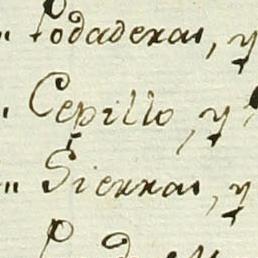 " Podaderas, y
" Cepillo, y
" Sierras, y